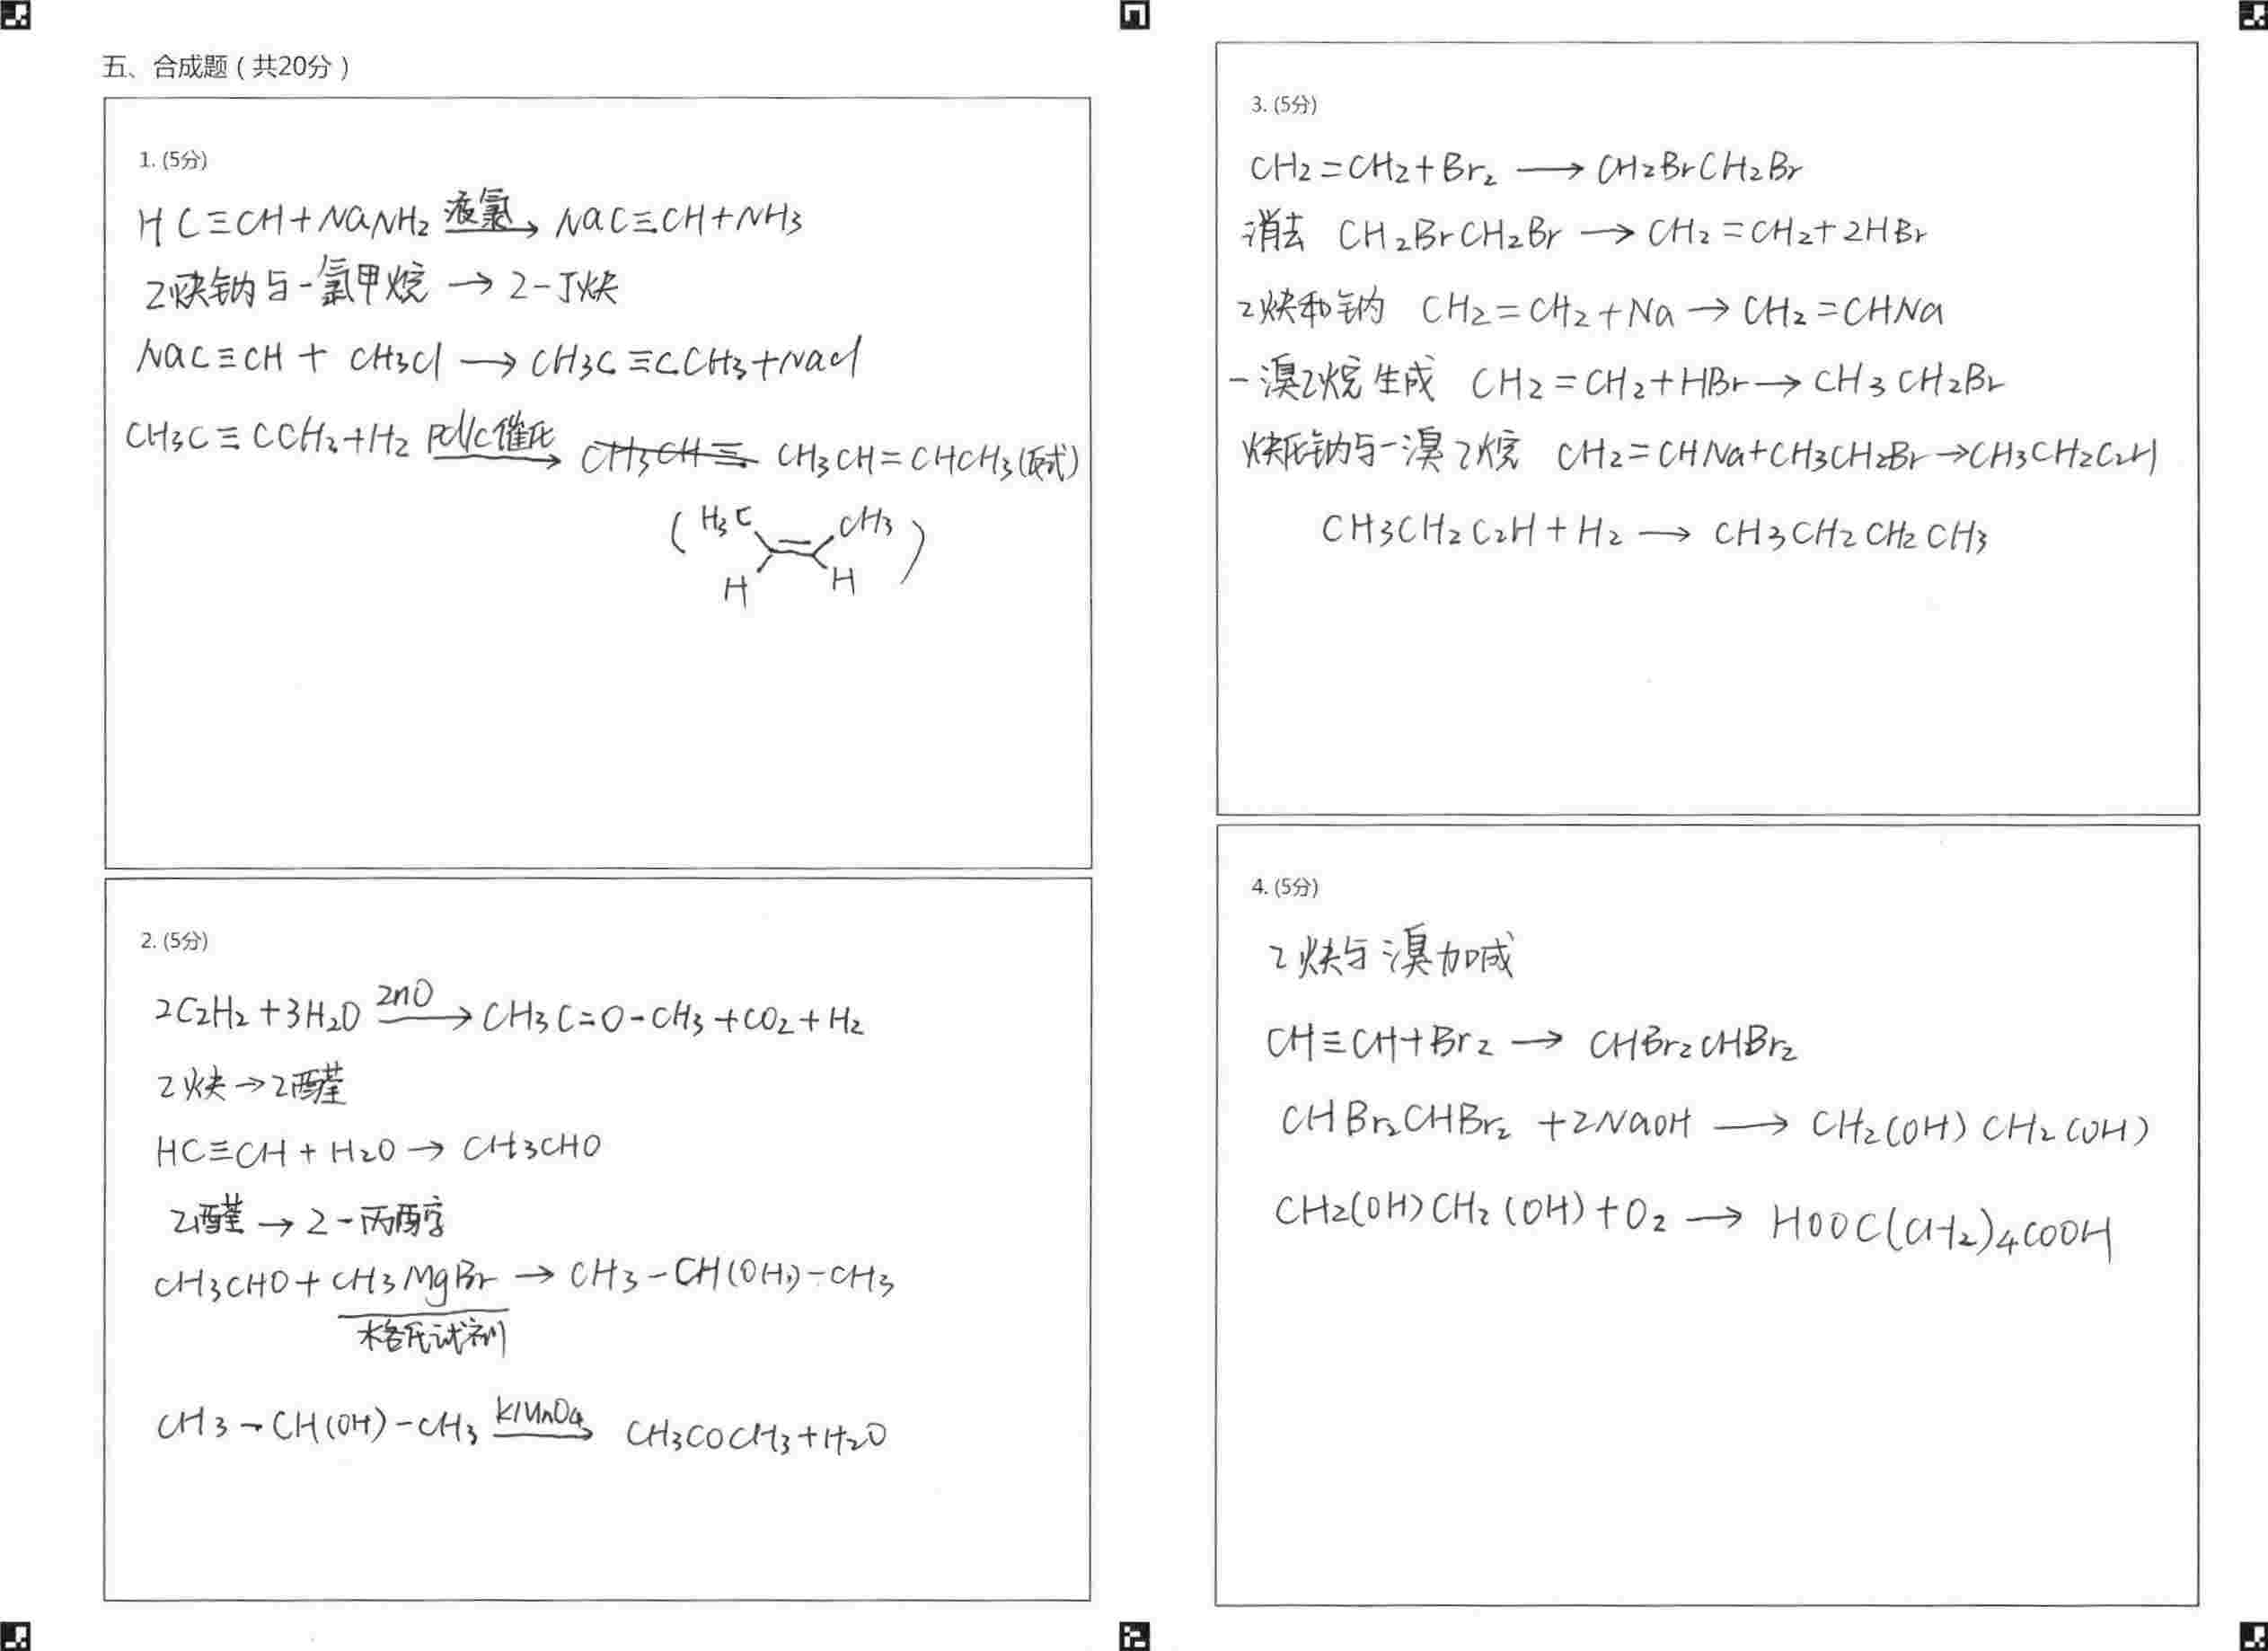 五、合成题（共20分）
1. (5分)
HC≡CH+NaNH₂ 液氯→ NaC≡CH+NH₃
乙炔钠与一氯甲烷 → 2-丁炔
NaC≡CH + CH₃Cl → CH₃C≡CCH₃+NaCl
CH₃C≡CCH₃+H₂ Pd/C催化→ CH₃CH≡ CH₃CH=CHCH₃(反式)
(H₃C CH₃)
H H
2. (5分)
2C₂H₂+3H₂O ZnO→ CH₃C=O-CH₃+CO₂+H₂
乙炔→乙醛
HC≡CH+H₂O→ CH₃CHO
乙醛→2-丙醇
CH₃CHO+CH₃MgBr → CH₃-CH(OH)-CH₃
格氏试剂
CH₃-CH(OH)-CH₃ KMnO₄→ CH₃COCH₃+H₂O
3. (5分)
CH₂=CH₂+Br₂ → CH₂BrCH₂Br
消去 CH₂BrCH₂Br → CH₂=CH₂+2HBr
乙炔和钠 CH₂=CH₂+Na→CH₂=CHNa
一溴乙烷生成 CH₂=CH₂+HBr→CH₃CH₂Br
炔化钠与一溴乙烷 CH₂=CHNa+CH₃CH₂Br→CH₃CH₂C₂H
CH₃CH₂C₂H+H₂ → CH₃CH₂CH₂CH₃
4. (5分)
乙炔与溴加成
CH≡CH+Br₂ → CHBr₂CHBr₂
CHBr₂CHBr₂ +2NaOH → CH₂(OH)CH₂(OH)
CH₂(OH)CH₂(OH)+O₂ → HOOC(CH₂)₄COOH